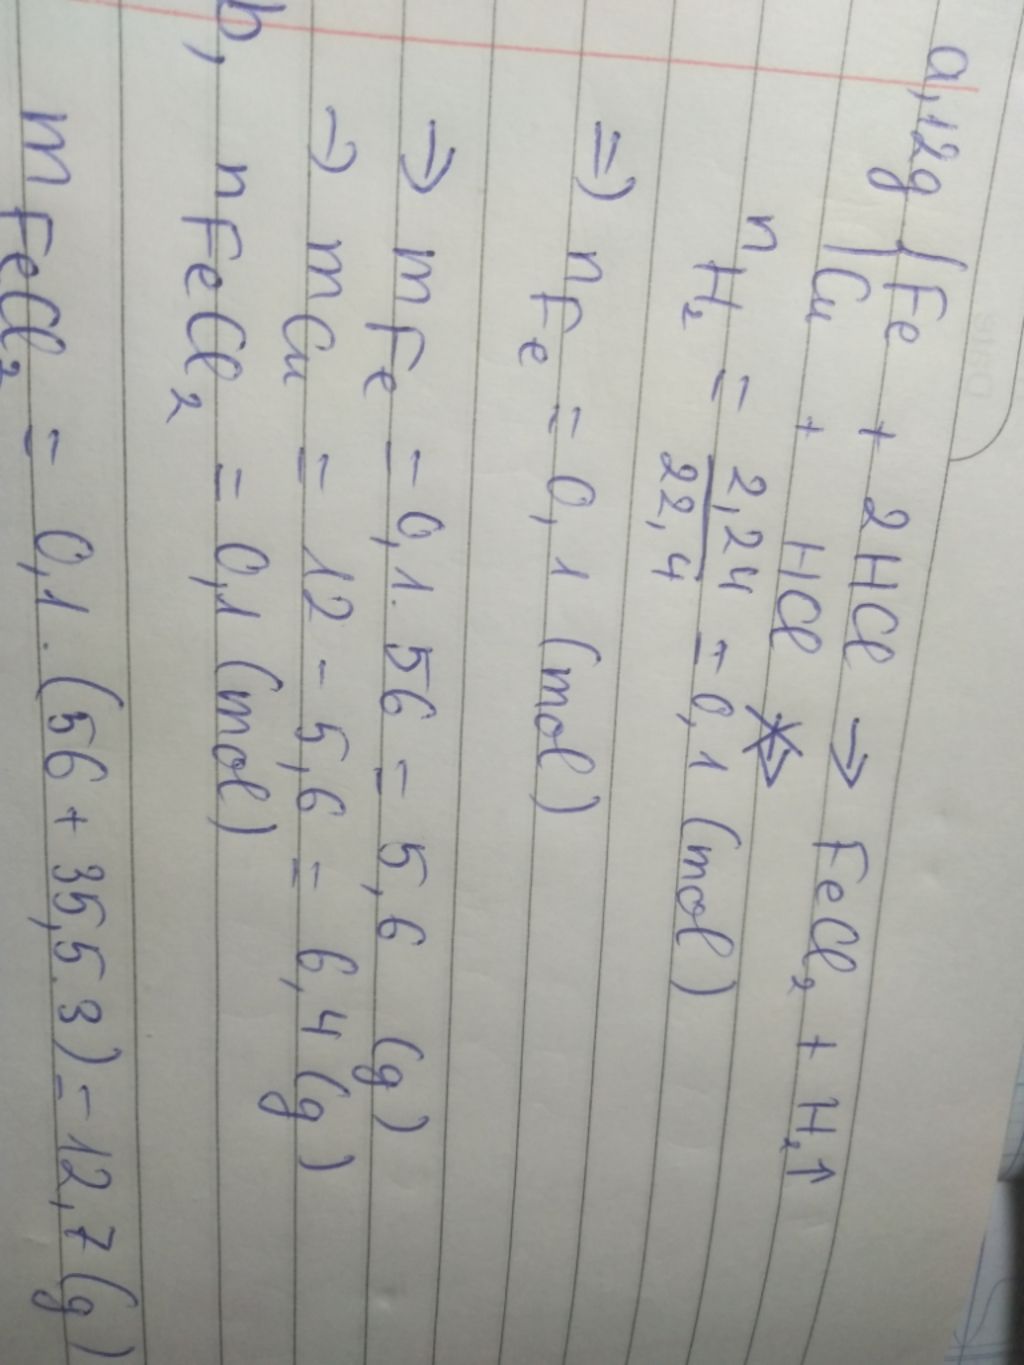 a, 12g { Fe + 2HCl → FeCl₂ + H₂↑
Cu + HCl ↛
n H₂ = 2,24/22,4 = 0,1 (mol)
=> n Fe = 0,1 (mol)
→ m Fe = 0,1 . 56 = 5,6 (g)
→ m Cu = 12 - 5,6 = 6,4 (g)
b, n FeCl₂ = 0,1 (mol)
m FeCl₂ = 0,1 . (56 + 35,5.3) = 12,7 (g)